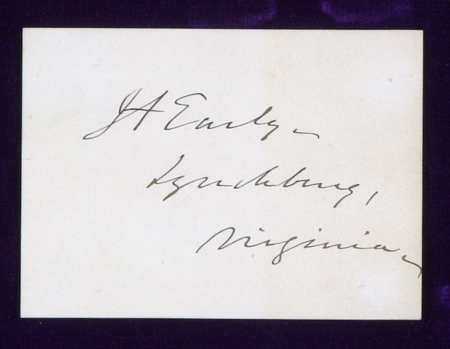 JA Early
Lynchburg,
Virginia